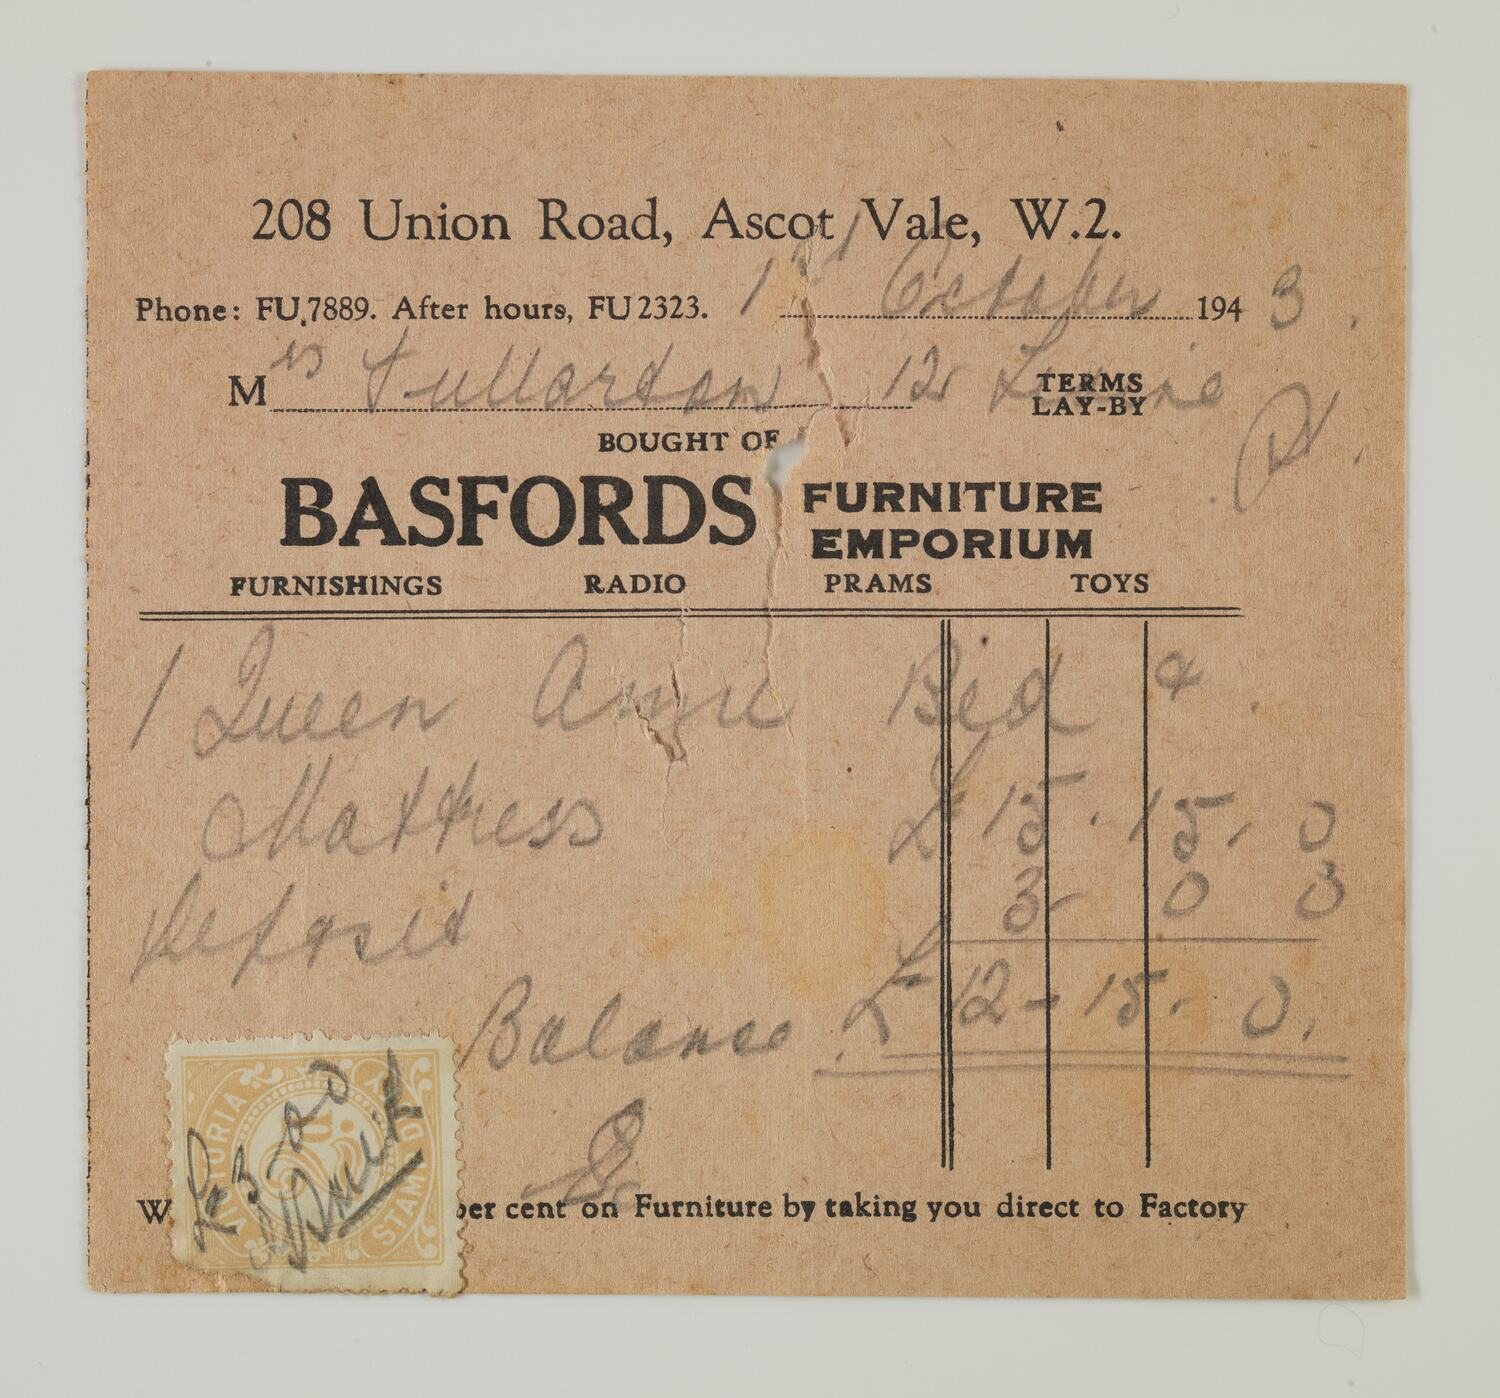 208 Union Road, Ascot Vale, W.2.
Phone: FU.7889. After hours, FU2323. 1st October 1943.
Mrs Fullarton 12 TERMS LAY-BY
BOUGHT OF
BASFORDS FURNITURE EMPORIUM
FURNISHINGS RADIO PRAMS TOYS
1 Queen Anne Bed &
Mattress £ 15. 15. 0
Deposit 3 - 0 0
Balance £ 12 - 15. 0.
per cent on Furniture by taking you direct to Factory
VICTORIA STAMP
£3